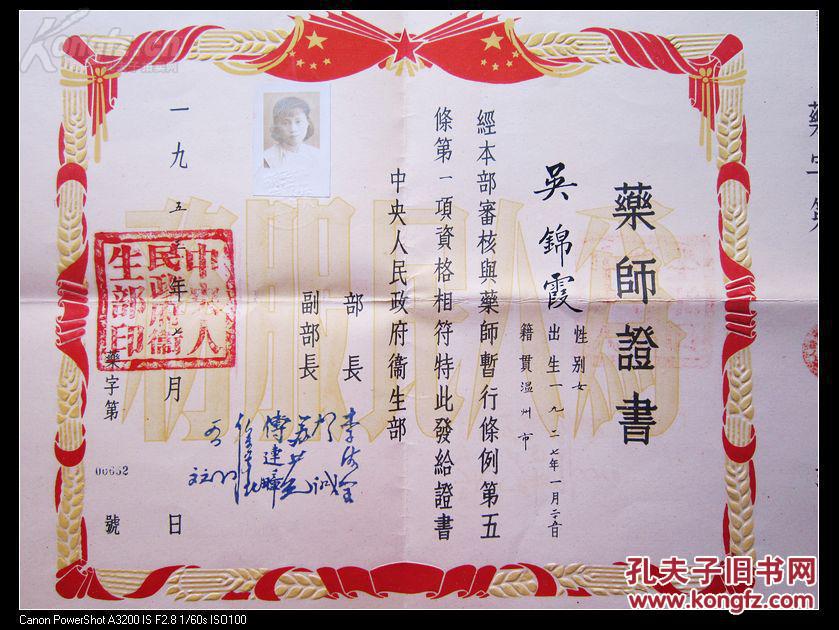 藥師證書
吳錦霞
性別女
出生一九二七年一月二百日
籍貫溫州市
經本部審核與藥師暫行條例第五
條第一項資格相符特此發給證書
中央人民政府衞生部
部長
副部長
李德全
傅連暲
一九五三年七月 日
中央人
民政府衞
生部印
藥字第
06652
號
為人民服務
藥字第
孔夫子旧书网
www.kongfz.com
Kongfz.cn
Canon PowerShot A3200 IS F2.8 1/60s ISO100